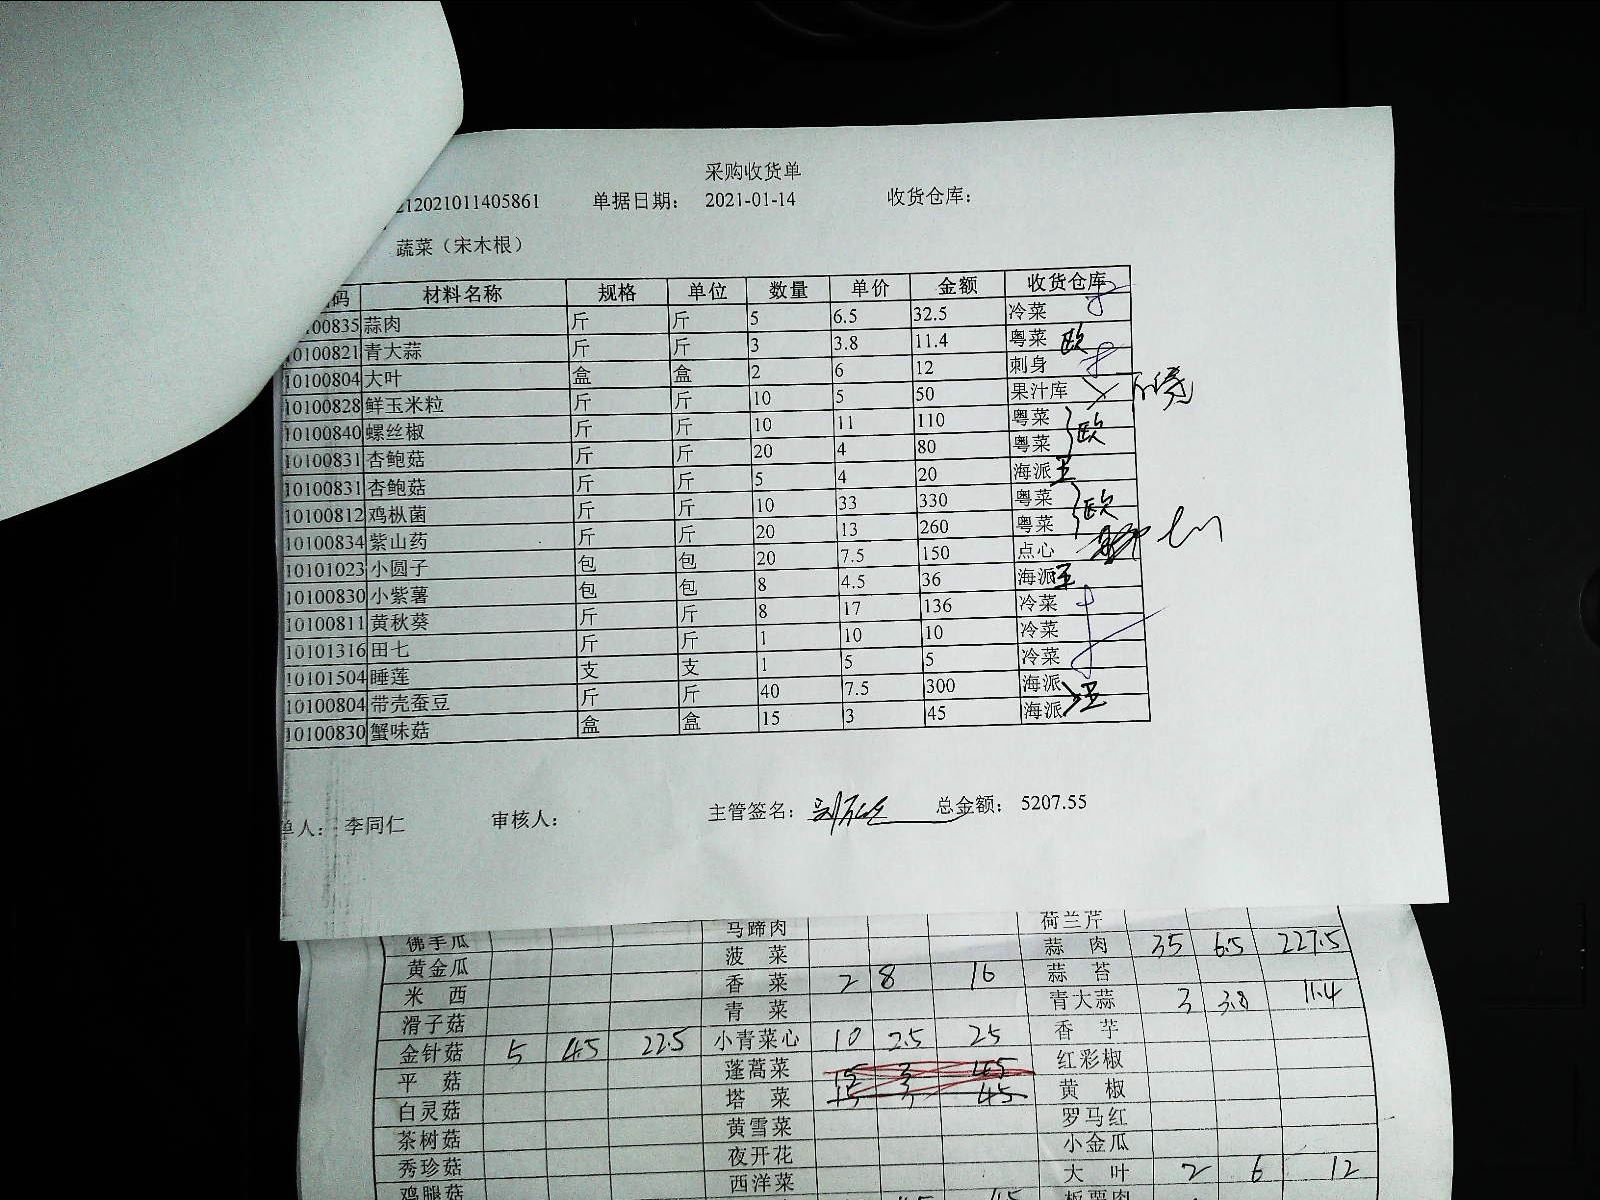 采购收货单
212021011405861 单据日期： 2021-01-14 收货仓库：
蔬菜（宋木根）
码 材料名称 规格 单位 数量 单价 金额 收货仓库
10100835 蒜肉 斤 斤 5 6.5 32.5 冷菜
10100821 青大蒜 斤 斤 3 3.8 11.4 粤菜 欧
10100804 大叶 盒 盒 2 6 12 刺身
10100828 鲜玉米粒 斤 斤 10 5 50 果汁库
10100840 螺丝椒 斤 斤 10 11 110 粤菜
10100831 杏鲍菇 斤 斤 20 4 80 粤菜 欧
10100831 杏鲍菇 斤 斤 5 4 20 海派 王
10100812 鸡枞菌 斤 斤 10 33 330 粤菜
10100834 紫山药 斤 斤 20 13 260 粤菜 欧
10101023 小圆子 包 包 20 7.5 150 点心
10100830 小紫薯 包 包 8 4.5 36 海派 王
10100811 黄秋葵 斤 斤 8 17 136 冷菜
10101316 田七 斤 斤 1 10 10 冷菜
10101504 睡莲 支 支 1 5 5 冷菜
10100804 带壳蚕豆 斤 斤 40 7.5 300 海派
10100830 蟹味菇 盒 盒 15 3 45 海派 王
单人： 李同仁 审核人： 主管签名： 总金额： 5207.55
马蹄肉 荷兰芹
佛手瓜 菠菜 蒜肉 35 6.5 227.5
黄金瓜 香菜 2 8 16 蒜苔
米西 青菜 青大蒜 3 3.8 11.4
滑子菇 小青菜心 10 2.5 25 香芋
金针菇 5 4.5 22.5 蓬蒿菜 15 3 45 红彩椒
平菇 塔菜 15 3 45 黄椒
白灵菇 黄雪菜 罗马红
茶树菇 夜开花 小金瓜
秀珍菇 西洋菜 大叶 2 6 12
鸡腿菇 板栗肉